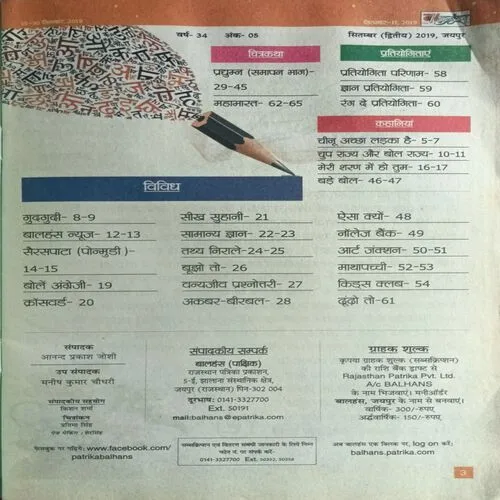 सितम्बर-II, 2019
वर्ष- 34 अंक- 05 सितम्बर (द्वितीय) 2019, जयपुर
चित्रकथा
प्रद्युम्न (समापन भाग)-
29-45
महाभारत- 62-65
प्रतियोगिताएं
प्रतियोगिता परिणाम- 58
ज्ञान प्रतियोगिता- 59
रंग दे प्रतियोगिता- 60
कहानियां
चीनू अच्छा लड़का है- 5-7
चुप राज्य और बोल राज्य- 10-11
मेरी शरण में हो तुम- 16-17
बड़े बोल- 46-47
विविध
गुदगुदी- 8-9
बालहंस न्यूज- 12-13
सैरसपाटा (पोन्मुडी)-
14-15
बोलें अंग्रेजी- 19
क्रॉसवर्ड- 20
सीख सुहानी- 21
सामान्य ज्ञान- 22-23
तथ्य निराले-24-25
बूझो तो- 26
वन्यजीव प्रश्नोत्तरी- 27
अकबर-बीरबल- 28
ऐसा क्यों- 48
नॉलेज बैंक- 49
आर्ट जंक्शन- 50-51
माथापच्ची- 52-53
किड्स क्लब- 54
ढूंढ़ो तो-61
संपादक
आनन्द प्रकाश जोशी
उप संपादक
मनीष कुमार चौधरी
संपादकीय सहयोग
किशन शर्मा
चित्रांकन
प्रतिमा सिंह
पेज मेकिंग : शेरसिंह
फेसबुक पर पढ़िये: www.facebook.com/
patrikabalhans
संपादकीय सम्पर्क
बालहंस (पाक्षिक)
राजस्थान पत्रिका प्रकाशन,
5-ई, झालाना संस्थानिक क्षेत्र,
जयपुर (राजस्थान) पिन-302 004
दूरभाष: 0141-3327700
Ext. 50191
mail:balhans@epatrika.com
सब्सक्रिप्शन एवं वितरण सम्बंधी जानकारी के लिये निम्न
फोन नं. पर संपर्क करें-
0141-3327700 Ext. 50352, 50358
ग्राहक शुल्क
कृपया ग्राहक शुल्क (सब्सक्रिप्शन)
की राशि बैंक ड्राफ्ट से
Rajasthan Patrika Pvt. Ltd.
A/c BALHANS
के नाम भिजवाएं। मनीऑर्डर
बालहंस, जयपुर के नाम से बनवाएं।
वार्षिक- 300/-रुपए,
अर्द्धवार्षिक- 150/-रुपए
अब बालहंस एक क्लिक पर, log on करें:
balhans.patrika.com
3